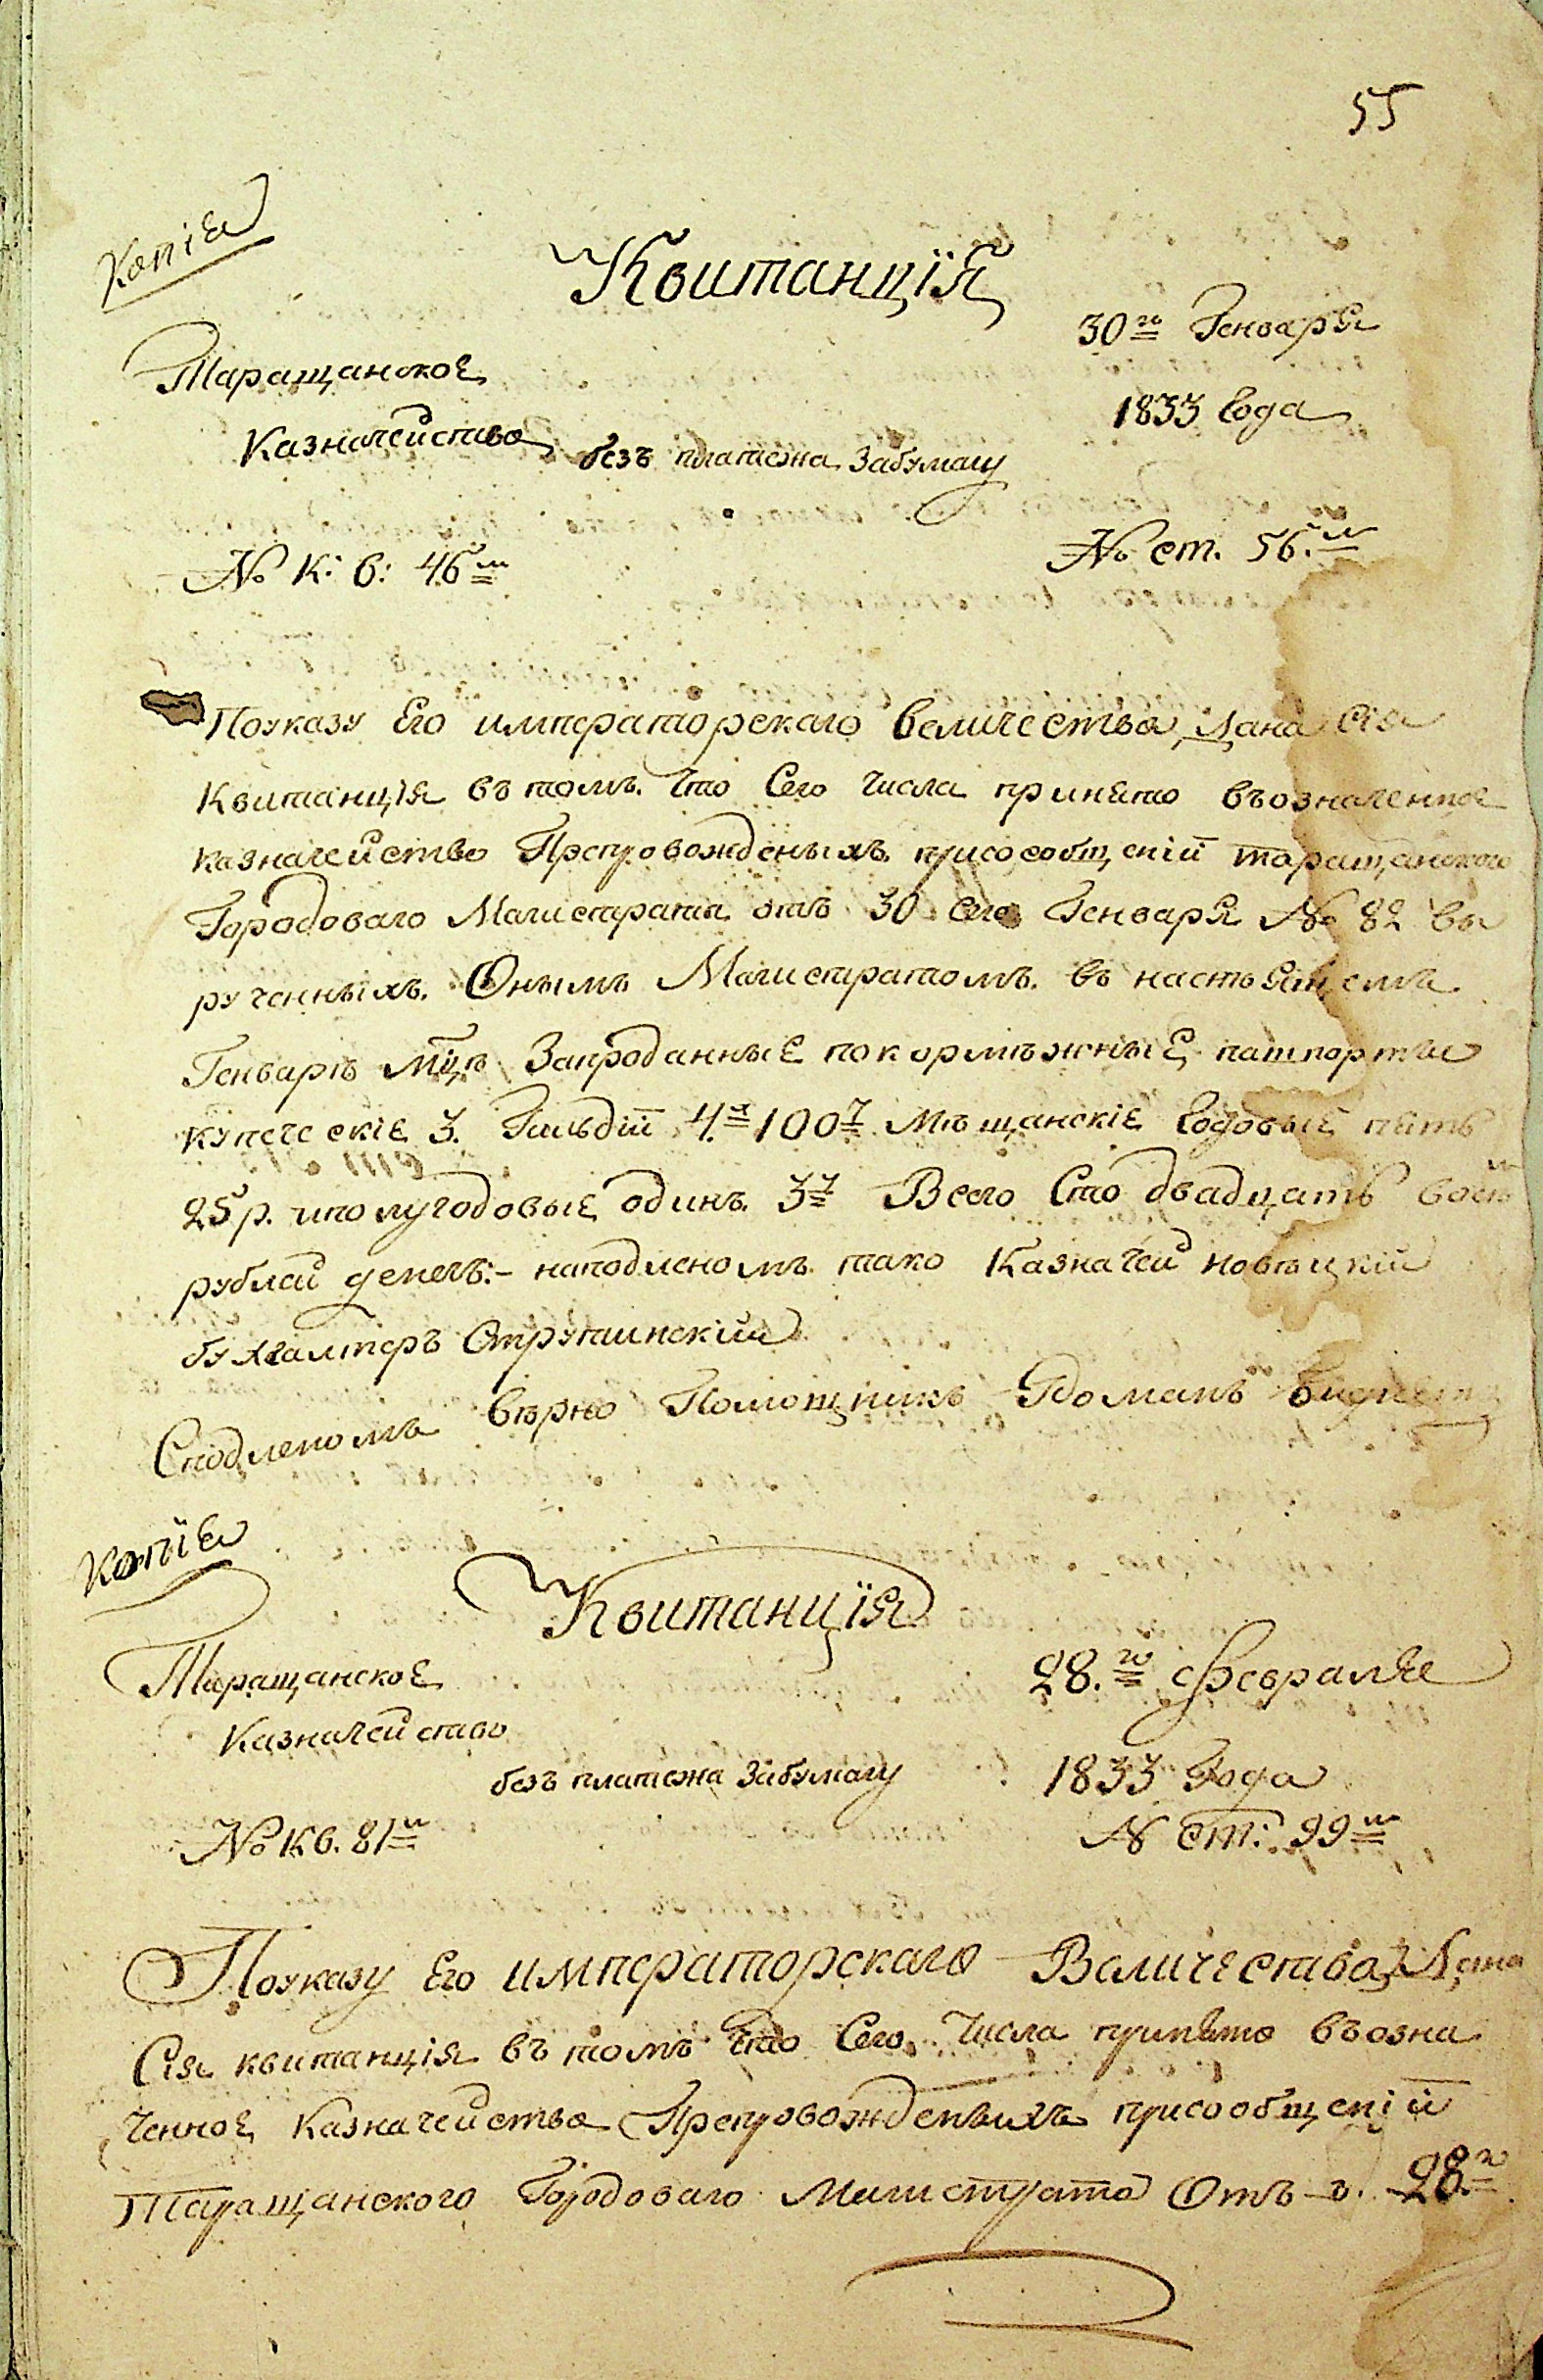 55
Копія
Квитанція
30го Генваря
Таращанское
1833 Года
Казначейство
безъ платежа Забумагу
№ К: в: 46м
№ ст. 56.м
Поуказу Его императорскаго величества, Дана Сія
Квитанція въ томъ. что Сего Числа принято въозначенное
казначейство Препровожденыхъ присообщеніи таращанского
Городоваго Магистрата отъ 30 сего Генваря № 82 вы
рученныхъ. Онымъ Магистратомъ. въ настоящемъ
Генварѣ мцѣ Запроданные покормѣжные пашпорты
купеческіе 3. Гильдіи 4.х 100 Мѣщанскіе Годовые пять
25 р. иполугодовые одинъ. 3 Всего Сто двадцать восм
рублей денегъ:- наподленомъ тако Казначей Новѣцкій
бухгалтеръ Струтинский
Сподленомъ вѣрно Помощникъ Романъ
Копія
Квитанція
Таращанское
28.го Февраля
Казначейство
безъ платежа Забумагу
1833 Года
№ Кв. 81м
№ ст: 99м
Поуказу Его императорскаго Величества, Дана
Сія квитанція въ томъ что Сего Числа принято въозна
ченное Казначейство Препровожденыхъ присообщеніи
Таращанского Городоваго Магистрата Отъ 28.го